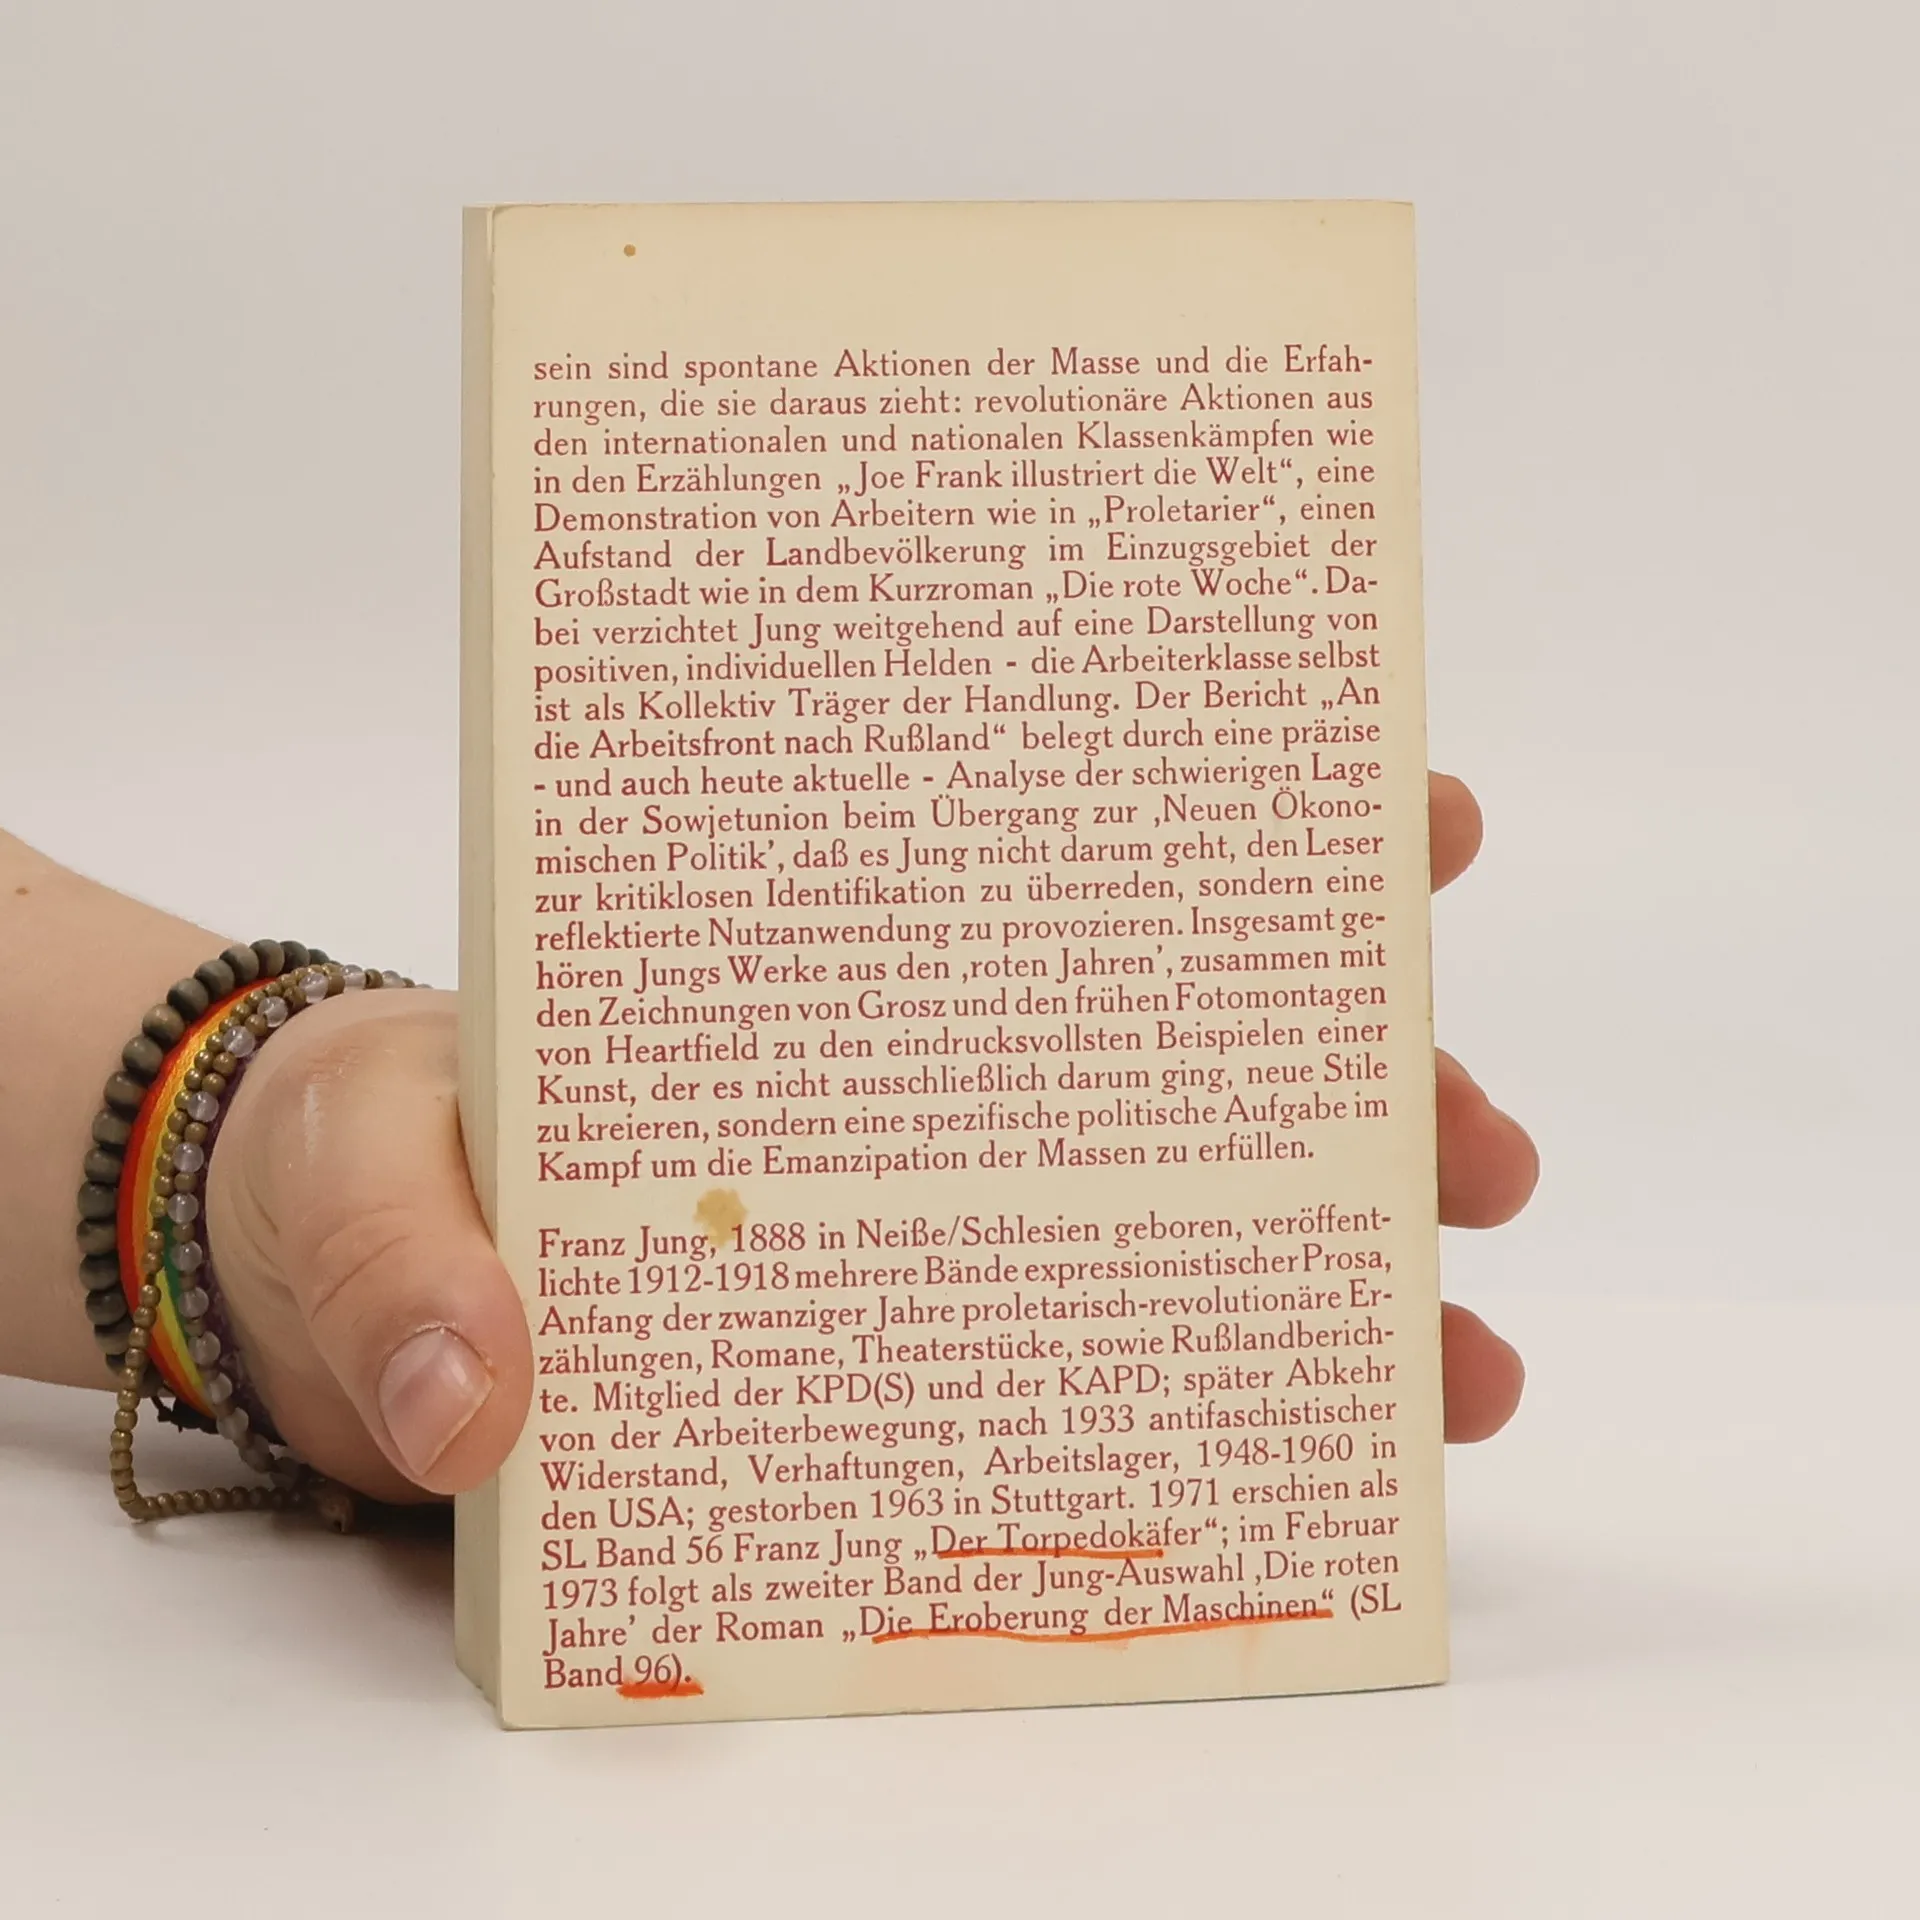 sein sind spontane Aktionen der Masse und die Erfah-
rungen, die sie daraus zieht: revolutionäre Aktionen aus
den internationalen und nationalen Klassenkämpfen wie
in den Erzählungen „Joe Frank illustriert die Welt“, eine
Demonstration von Arbeitern wie in „Proletarier“, einen
Aufstand der Landbevölkerung im Einzugsgebiet der
Großstadt wie in dem Kurzroman „Die rote Woche“. Da-
bei verzichtet Jung weitgehend auf eine Darstellung von
positiven, individuellen Helden - die Arbeiterklasse selbst
ist als Kollektiv Träger der Handlung. Der Bericht „An
die Arbeitsfront nach Rußland“ belegt durch eine präzise
- und auch heute aktuelle - Analyse der schwierigen Lage
in der Sowjetunion beim Übergang zur ‚Neuen Ökono-
mischen Politik’, daß es Jung nicht darum geht, den Leser
zur kritiklosen Identifikation zu überreden, sondern eine
reflektierte Nutzanwendung zu provozieren. Insgesamt ge-
hören Jungs Werke aus den ‚roten Jahren’, zusammen mit
den Zeichnungen von Grosz und den frühen Fotomontagen
von Heartfield zu den eindrucksvollsten Beispielen einer
Kunst, der es nicht ausschließlich darum ging, neue Stile
zu kreieren, sondern eine spezifische politische Aufgabe im
Kampf um die Emanzipation der Massen zu erfüllen.
Franz Jung, 1888 in Neiße/Schlesien geboren, veröffent-
lichte 1912-1918 mehrere Bände expressionistischer Prosa,
Anfang der zwanziger Jahre proletarisch-revolutionäre Er-
zählungen, Romane, Theaterstücke, sowie Rußlandberich-
te. Mitglied der KPD(S) und der KAPD; später Abkehr
von der Arbeiterbewegung, nach 1933 antifaschistischer
Widerstand, Verhaftungen, Arbeitslager, 1948-1960 in
den USA; gestorben 1963 in Stuttgart. 1971 erschien als
SL Band 56 Franz Jung „Der Torpedokäfer“; im Februar
1973 folgt als zweiter Band der Jung-Auswahl ‚Die roten
Jahre’ der Roman „Die Eroberung der Maschinen“ (SL
Band 96).